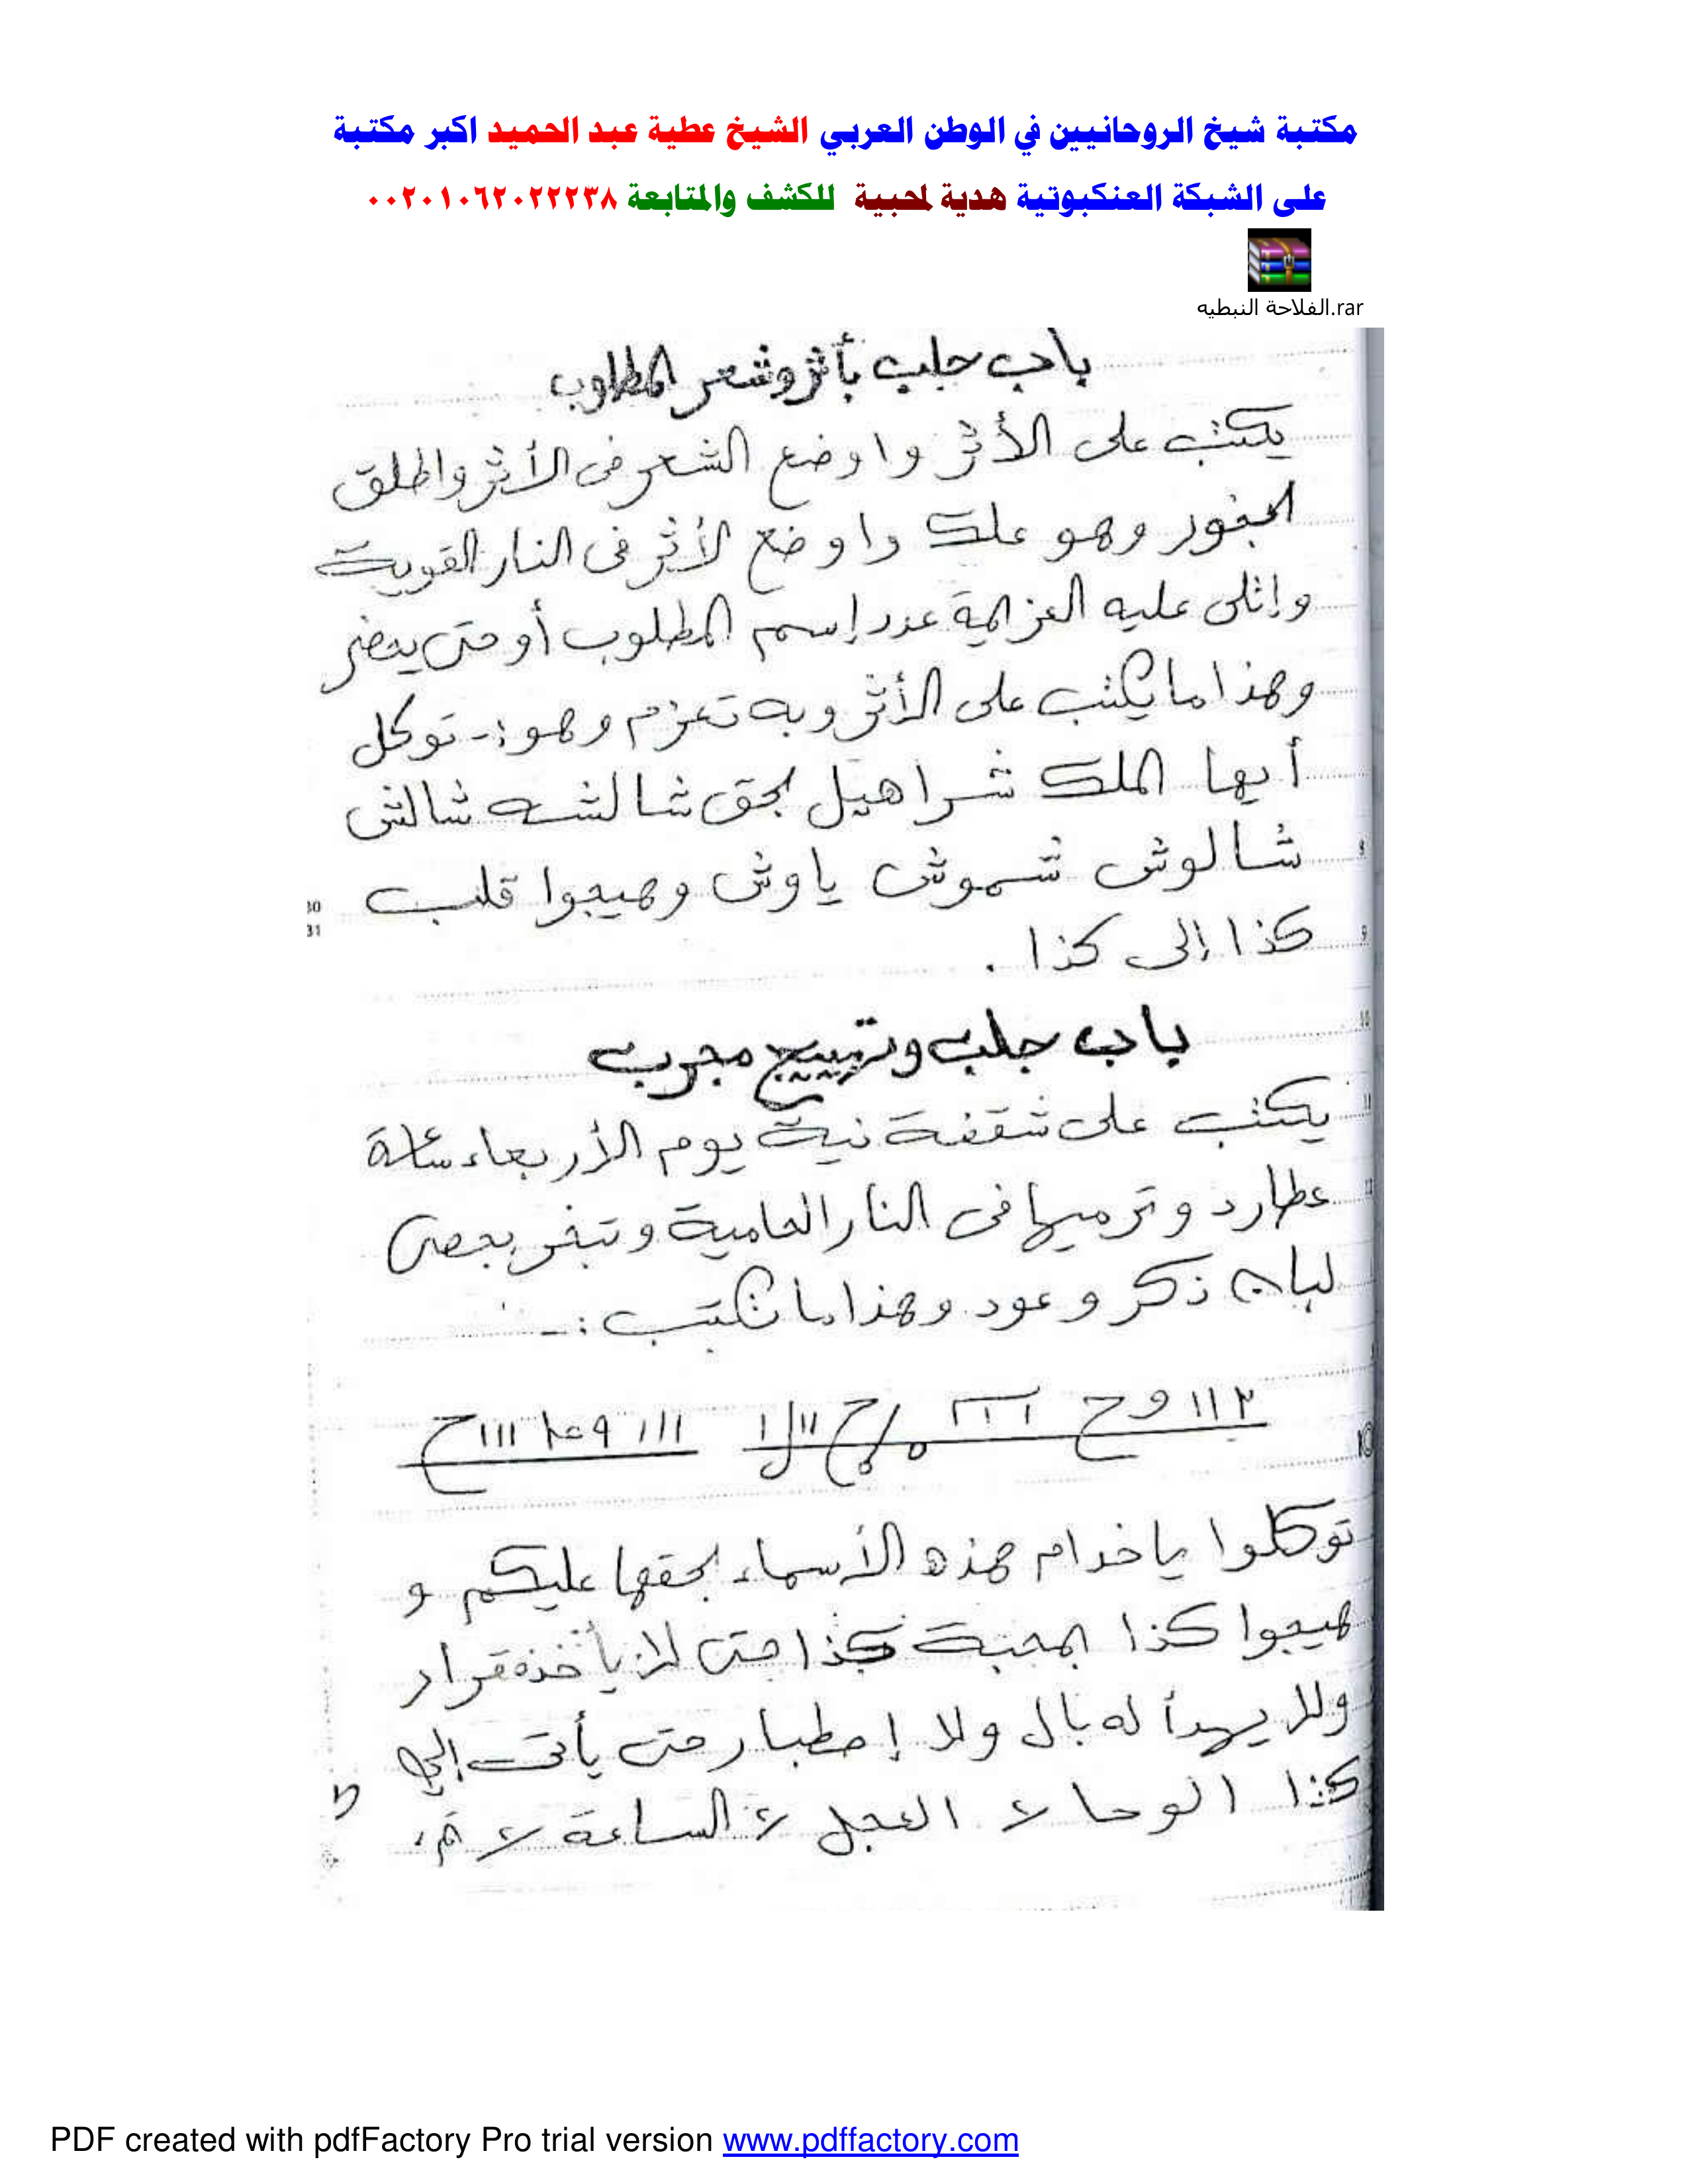 مكتبة شيخ الروحانيين في الوطن العربي الشيخ عطية عبد الحميد اكبر مكتبة
على الشبكة العنكبوتية هدية لمحبية للكشف والمتابعة ٠٠٢٠١٠٦٢٠٢٢٢٣٨
الفلاحة النبطيه.rar
باب جلب بأثر وشعر المطلوب
يكتب على الأثر واوضع الشعر فى الأثر واطلق
البخور وهو علك واوضع الأثر فى النار القوية
وإتلى عليه العزيمة عدد إسم المطلوب أو حتى يحضر
وهذا ما يكتب على الأثر وبه تعزم وهو :- توكل
أيها الملك شراهيل بحق شالشه شالش
شالوش شموش ياوش وهيجوا قلب
كذا إلى كذا .
باب جلب وتهييج مجرب
يكتب على شقفة نية يوم الأربعاء ساعة
عطارد وترميها فى النار الحامية وتبخر بحصى
لبان ذكر وعود وهذا ما تكتب :-
توكلوا ياخدام هذه الأسماء بحقها عليكم و
هيجوا كذا بمحبة كذا حتى لا يأخذه قرار
ولا يهدأ له بال ولا إصطبار حتى يأتى إلى
كذا الوحا ٢ العجل ٢ الساعة ٢
30
31
8
9
10
11
12
10
PDF created with pdfFactory Pro trial version www.pdffactory.com